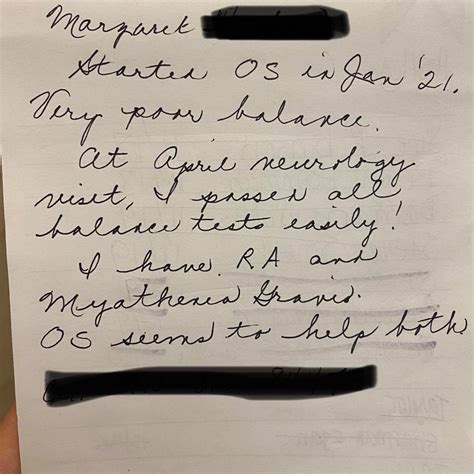 Margaret
Started OS in Jan '21.
Very poor balance.
At April neurology
visit, I passed all
balance tests easily!
I have RA and
Myathenia Gravis.
OS seems to help both.